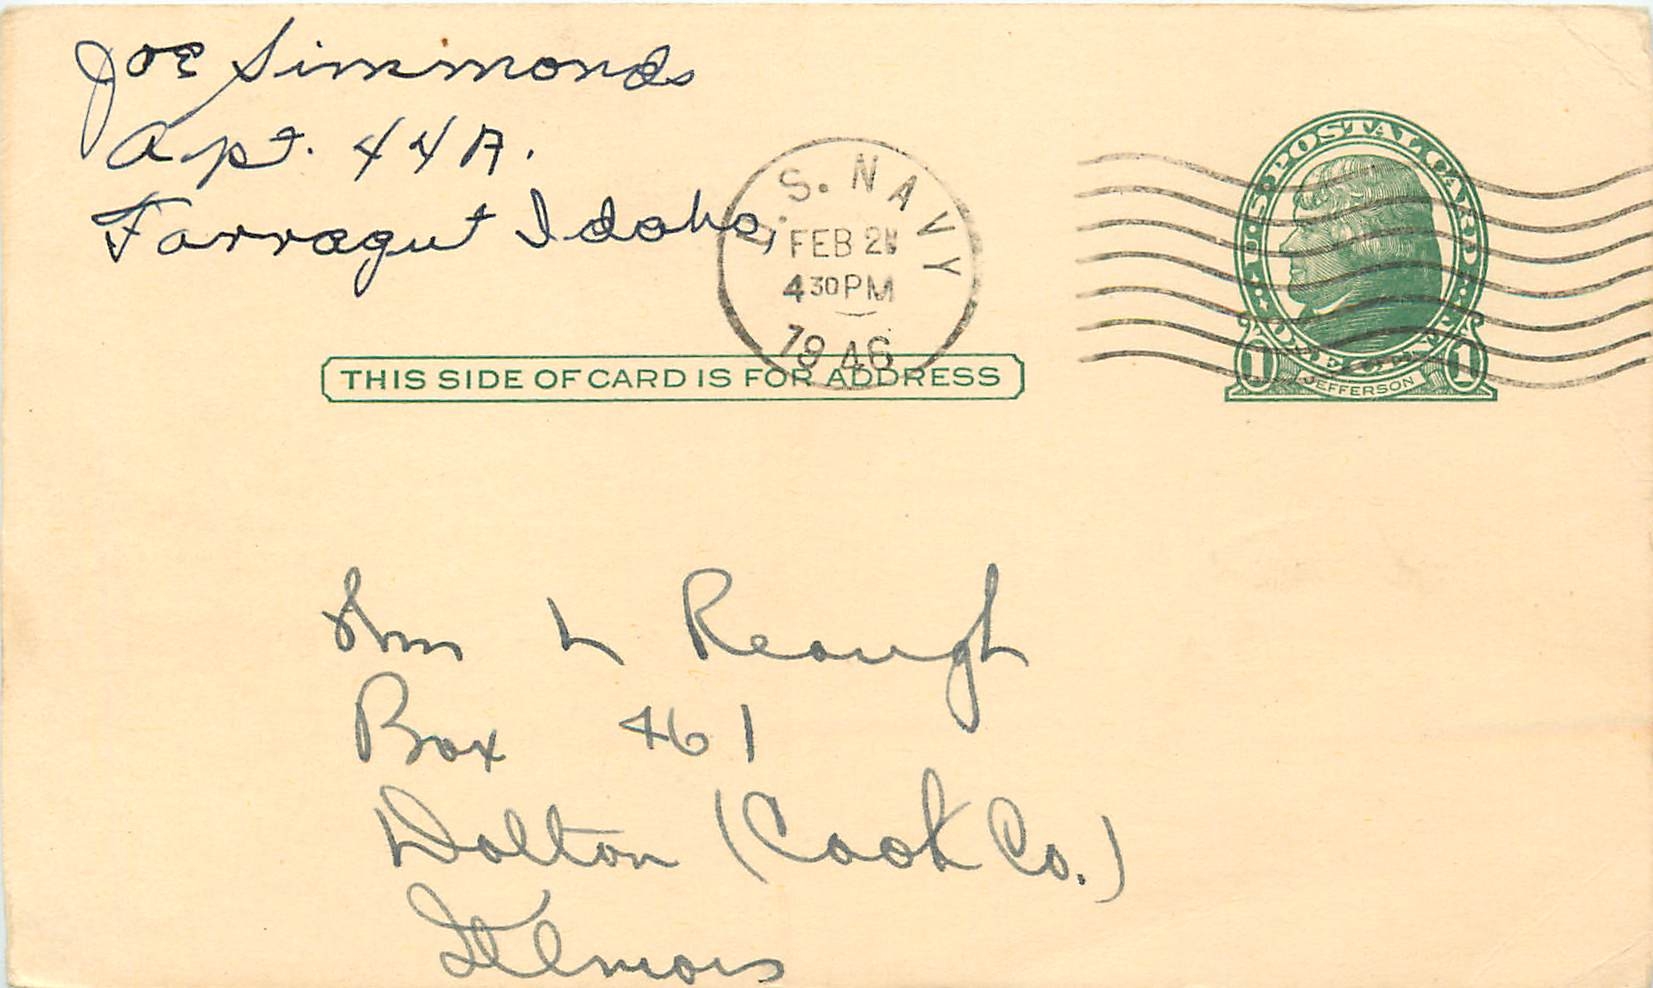 Joe Simmonds
Apt. 44A.
Farragut Idaho,
U.S. NAVY
FEB 2
4 30 PM
1946
U.S. POSTAL CARD
ONE CENT
1 JEFFERSON 1
THIS SIDE OF CARD IS FOR ADDRESS
Wm L Reough
Box 461
Dolton (Cook Co.)
Illinois